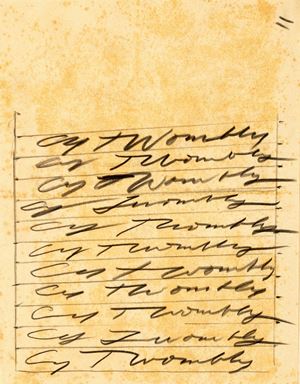 Cy Twombly
Cy Twombly
Cy Twombly
Cy Twombly
Cy Twombly
Cy Twombly
Cy Twombly
Cy Twombly
Cy Twombly
Cy Twombly
Cy Twombly